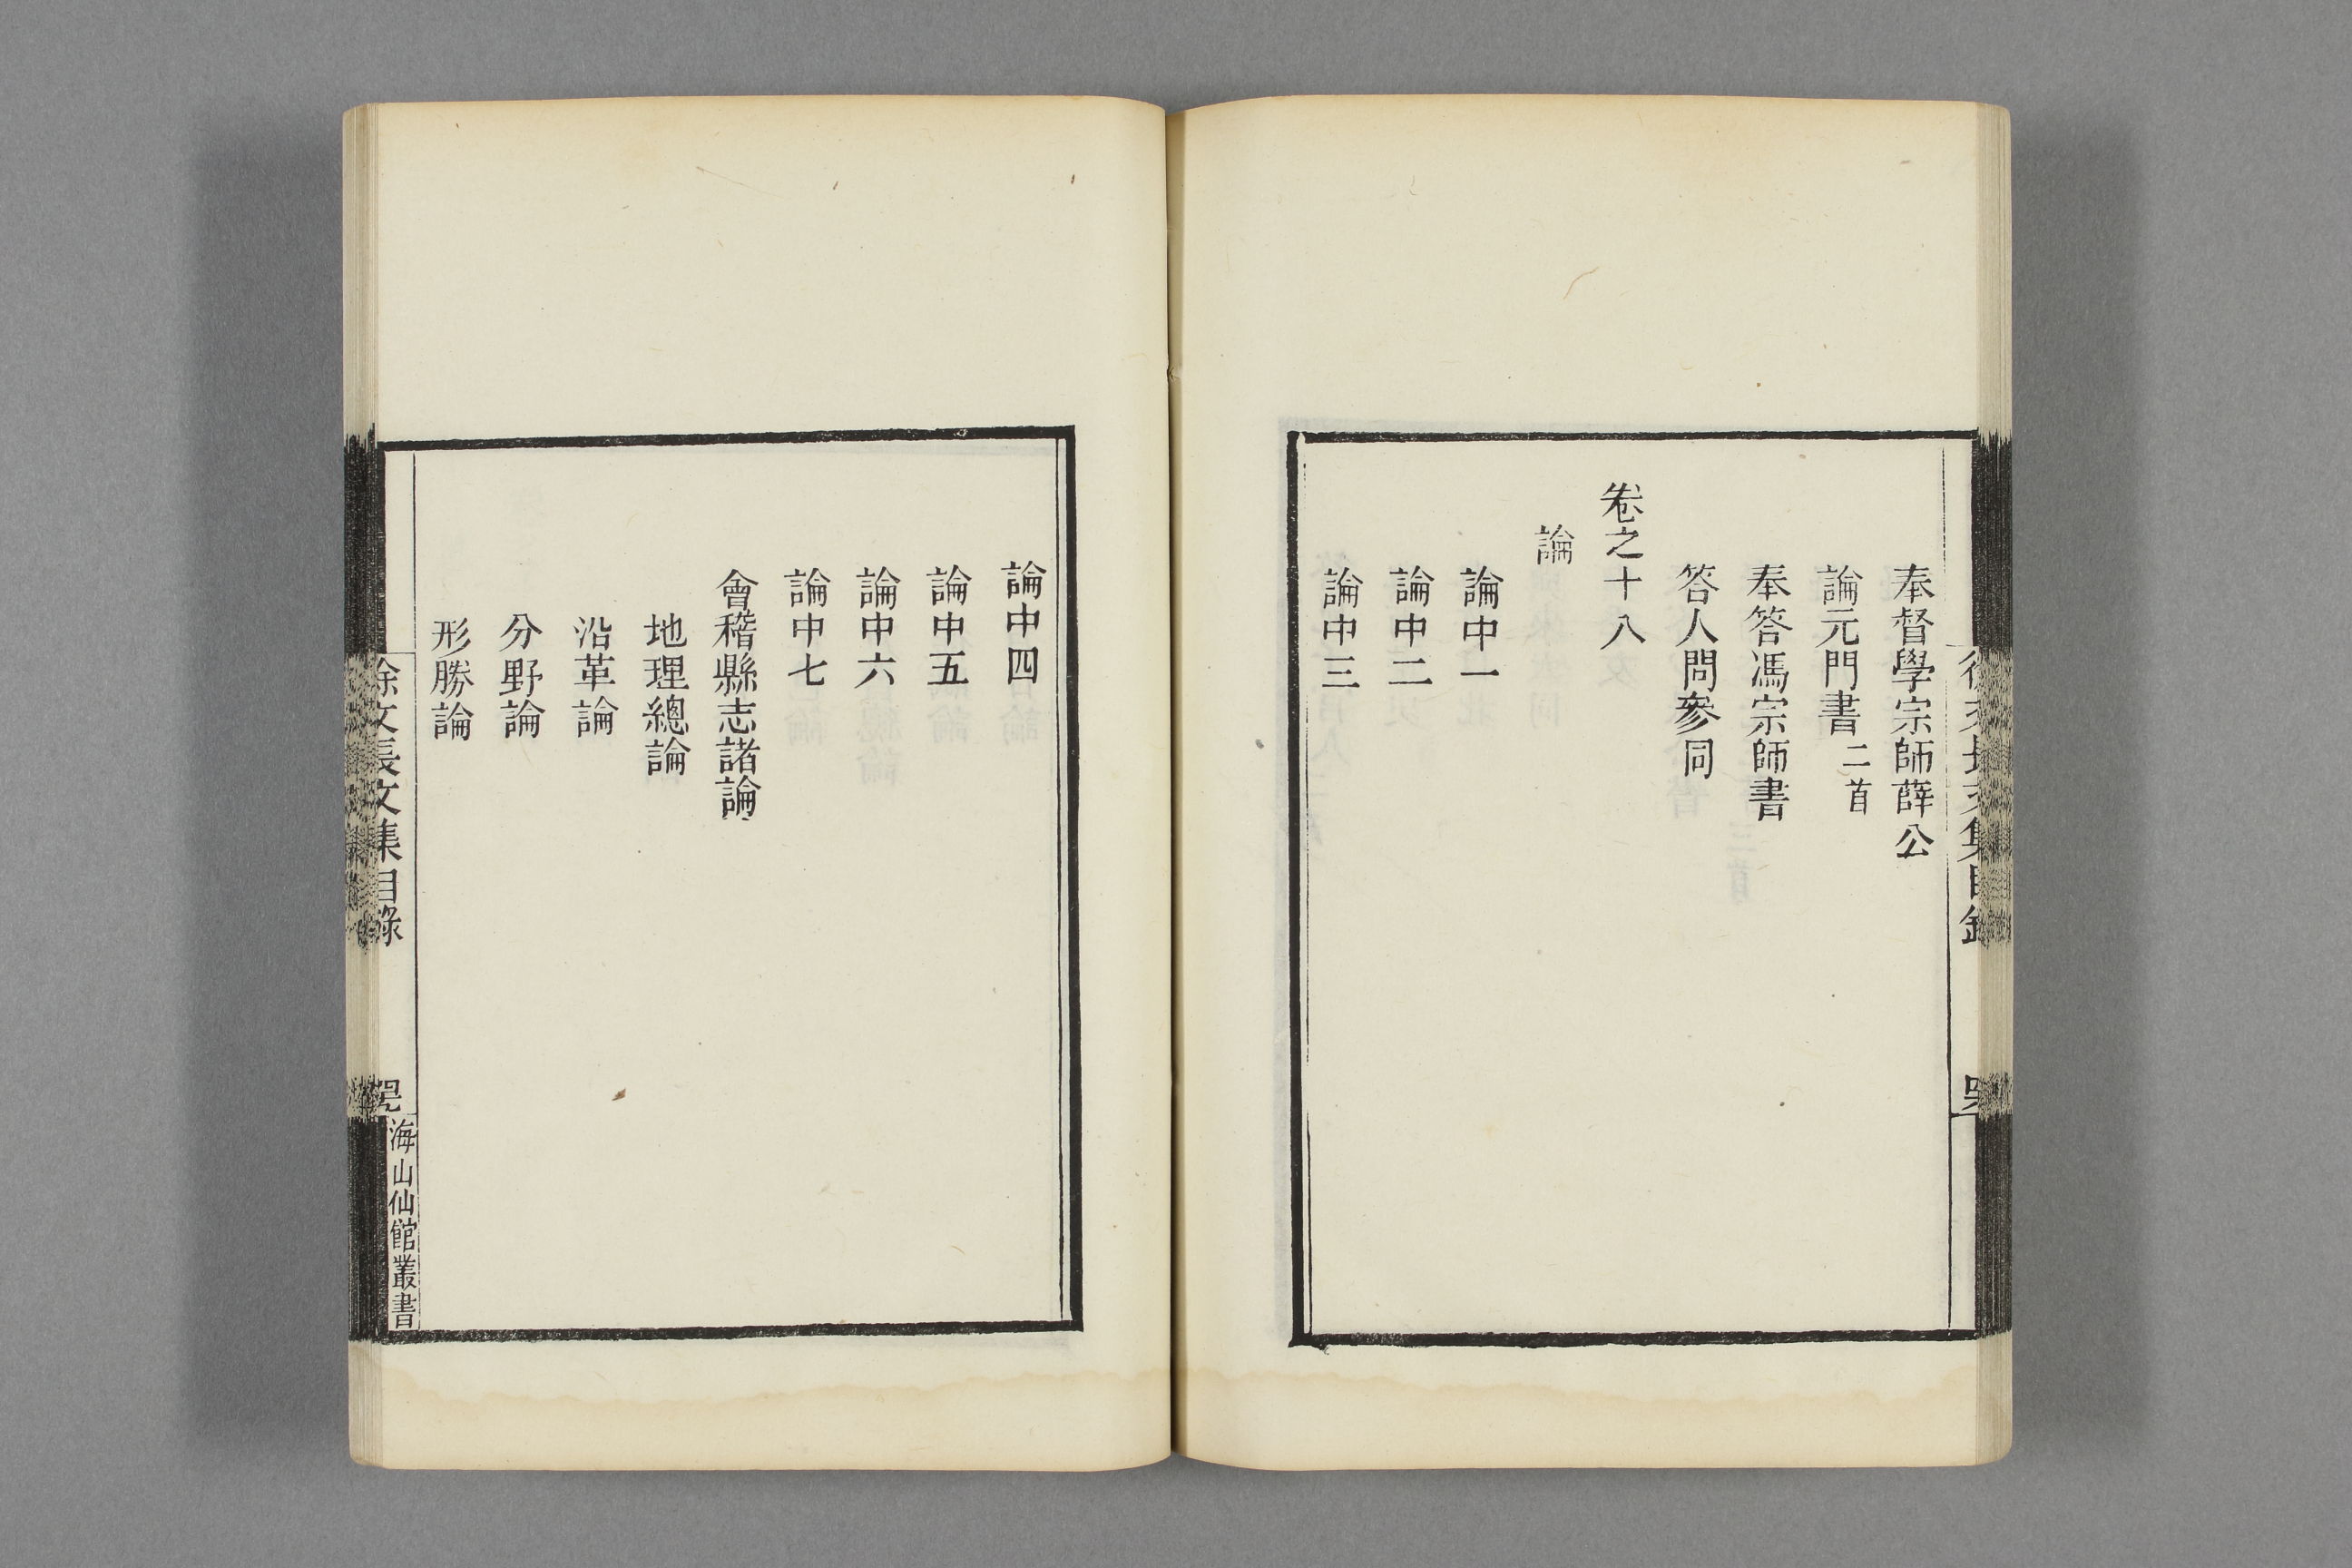 奉督學宗師薛公
論元門書二首
奉答馮宗師書
答人問參同
卷之十八
論
論中一
論中二
論中三
論中四
論中五
論中六
論中七
會稽縣志諸論
地理總論
沿革論
分野論
形勝論
徐文長文集目錄
海山仙館叢書